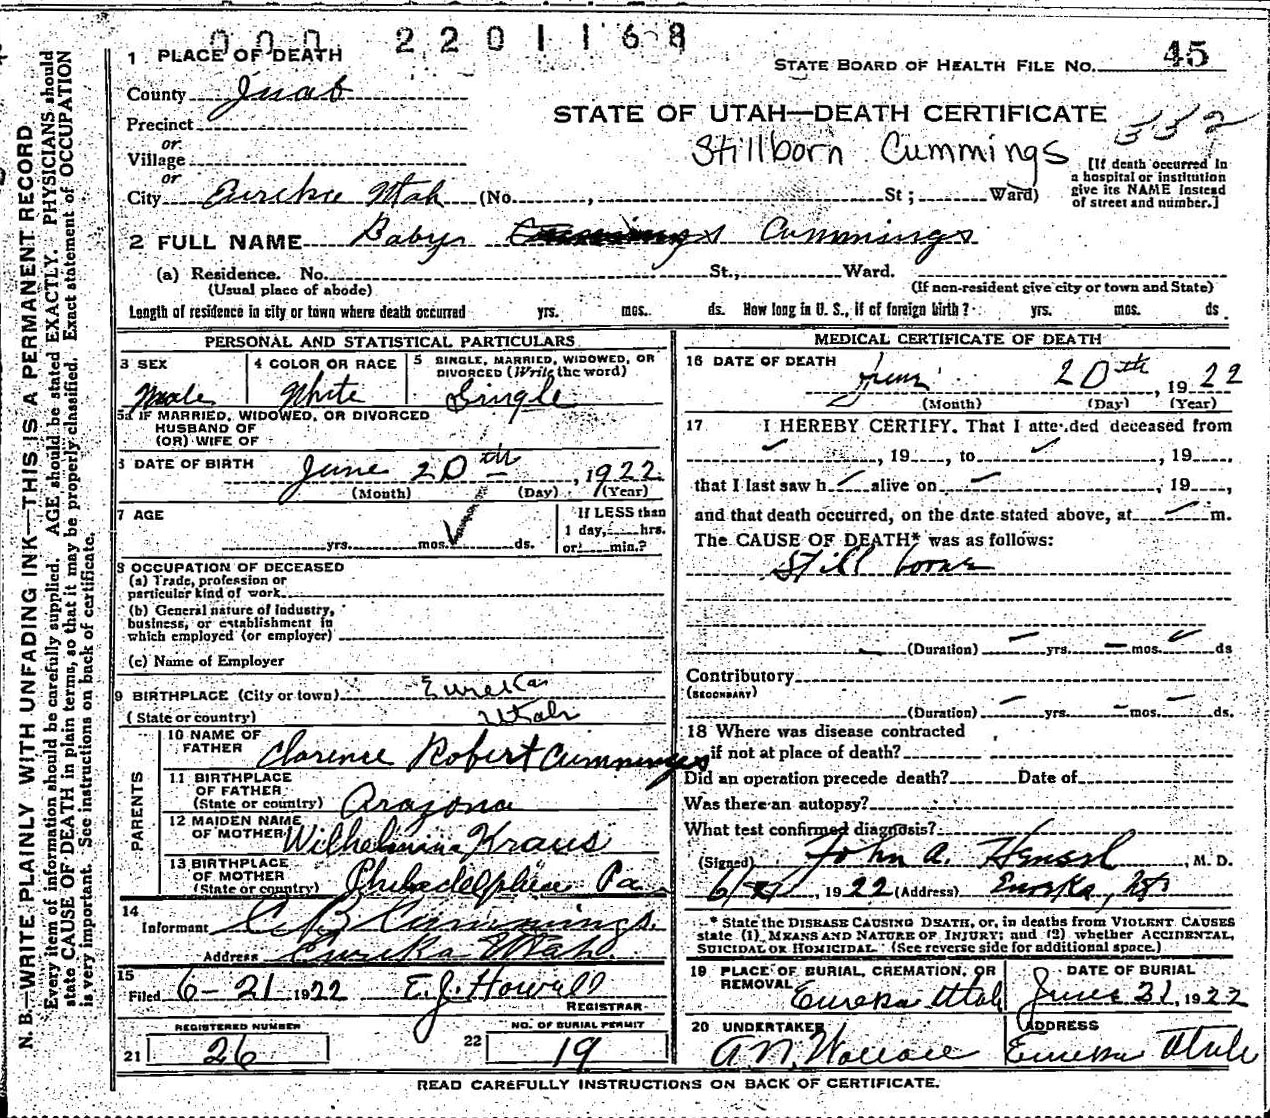 000 2201168
1 PLACE OF DEATH
STATE BOARD OF HEALTH FILE NO. 45
County Juab
STATE OF UTAH—DEATH CERTIFICATE 532
Precinct
or
Village
or
Stillborn Cummings
[If death occurred in a hospital or institution give its NAME instead of street and number.]
City Eureka Utah (No. , St ; Ward)
2 FULL NAME Baby Cummings Cummings
(a) Residence. No. St., Ward.
(Usual place of abode) (If non-resident give city or town and State)
Length of residence in city or town where death occurred yrs. mos. ds. How long in U. S., if of foreign birth? yrs. mos. ds
PERSONAL AND STATISTICAL PARTICULARS
3 SEX Male
4 COLOR OR RACE White
5 SINGLE, MARRIED, WIDOWED, OR DIVORCED (Write the word) Single
5a IF MARRIED, WIDOWED, OR DIVORCED
HUSBAND OF
(OR) WIFE OF
6 DATE OF BIRTH June 20th, 1922
(Month) (Day) (Year)
7 AGE yrs. mos. ds.
If LESS than
1 day, hrs.
or min.?
8 OCCUPATION OF DECEASED
(a) Trade, profession or
particular kind of work
(b) General nature of industry,
business, or establishment in
which employed (or employer)
(c) Name of Employer
9 BIRTHPLACE (City or town) Eureka
(State or country) Utah
PARENTS
10 NAME OF FATHER Clarence Robert Cummings
11 BIRTHPLACE OF FATHER (State or country) Arazona
12 MAIDEN NAME OF MOTHER Wilhelmina Kraus
13 BIRTHPLACE OF MOTHER (State or country) Philadelphia Pa
14 Informant C. R. Cummings.
Address Eureka Utah.
15 Filed 6-21 1922 E. J. Howell
REGISTRAR
REGISTERED NUMBER
21 26
NO. OF BURIAL PERMIT
22 19
MEDICAL CERTIFICATE OF DEATH
16 DATE OF DEATH June 20th, 1922
(Month) (Day) (Year)
17 I HEREBY CERTIFY. That I attended deceased from
, 19 , to , 19 ,
that I last saw h alive on , 19 ,
and that death occurred, on the date stated above, at m.
The CAUSE OF DEATH* was as follows:
Still born
(Duration) yrs. mos. ds
Contributory
(SECONDARY)
(Duration) yrs. mos. ds.
18 Where was disease contracted
if not at place of death?
Did an operation precede death? Date of
Was there an autopsy?
What test confirmed diagnosis?
(Signed) John A. Hensel, M. D.
1922 (Address) Eureka, Ut
* State the DISEASE CAUSING DEATH, or, in deaths from VIOLENT CAUSES
state (1) MEANS AND NATURE OF INJURY; and (2) whether ACCIDENTAL,
SUICIDAL OR HOMICIDAL (See reverse side for additional space.)
19 PLACE OF BURIAL, CREMATION, OR REMOVAL Eureka Utah
DATE OF BURIAL June 21, 1922
20 UNDERTAKER A. N. Wallace
ADDRESS Eureka Utah
READ CAREFULLY INSTRUCTIONS ON BACK OF CERTIFICATE.
N. B.—WRITE PLAINLY WITH UNFADING INK—THIS IS A PERMANENT RECORD
Every item of information should be carefully supplied. AGE should be stated EXACTLY. PHYSICIANS should
state CAUSE OF DEATH in plain terms, so that it may be properly classified. Exact statement of OCCUPATION
is very important. See instructions on back of certificate.